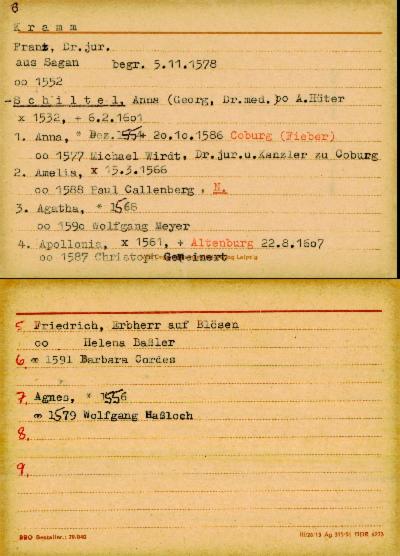 6
K r a m m
Franz, Dr.jur.
aus Sagan begr. 5.11.1578
oo 1552
-S c h i l t e l, Anna (Georg, Dr.med. oo A.Hüter
x 1532, + 6.2.1601
1. Anna, * Dez.1554 20.10.1586 Coburg (Fieber)
oo 1577 Michael Wirdt, Dr.jur.u.Kanzler zu Coburg
2. Amelia, x 15.3.1566
oo 1588 Paul Callenberg, N.
3. Agatha, * 1566
oo 1590 Wolfgang Meyer
4. Apollonia, x 1561, + Altenburg 22.8.1607
oo 1587 Christoph Gemeinert
5. Friedrich, Erbherr auf Blösen
oo Helena Baßler
6. ∞ 1591 Barbara Cordes
7. Agnes, * 1556
∞ 1579 Wolfgang Haßloch
8.
9.
BBO Bestellnr.: 79.840